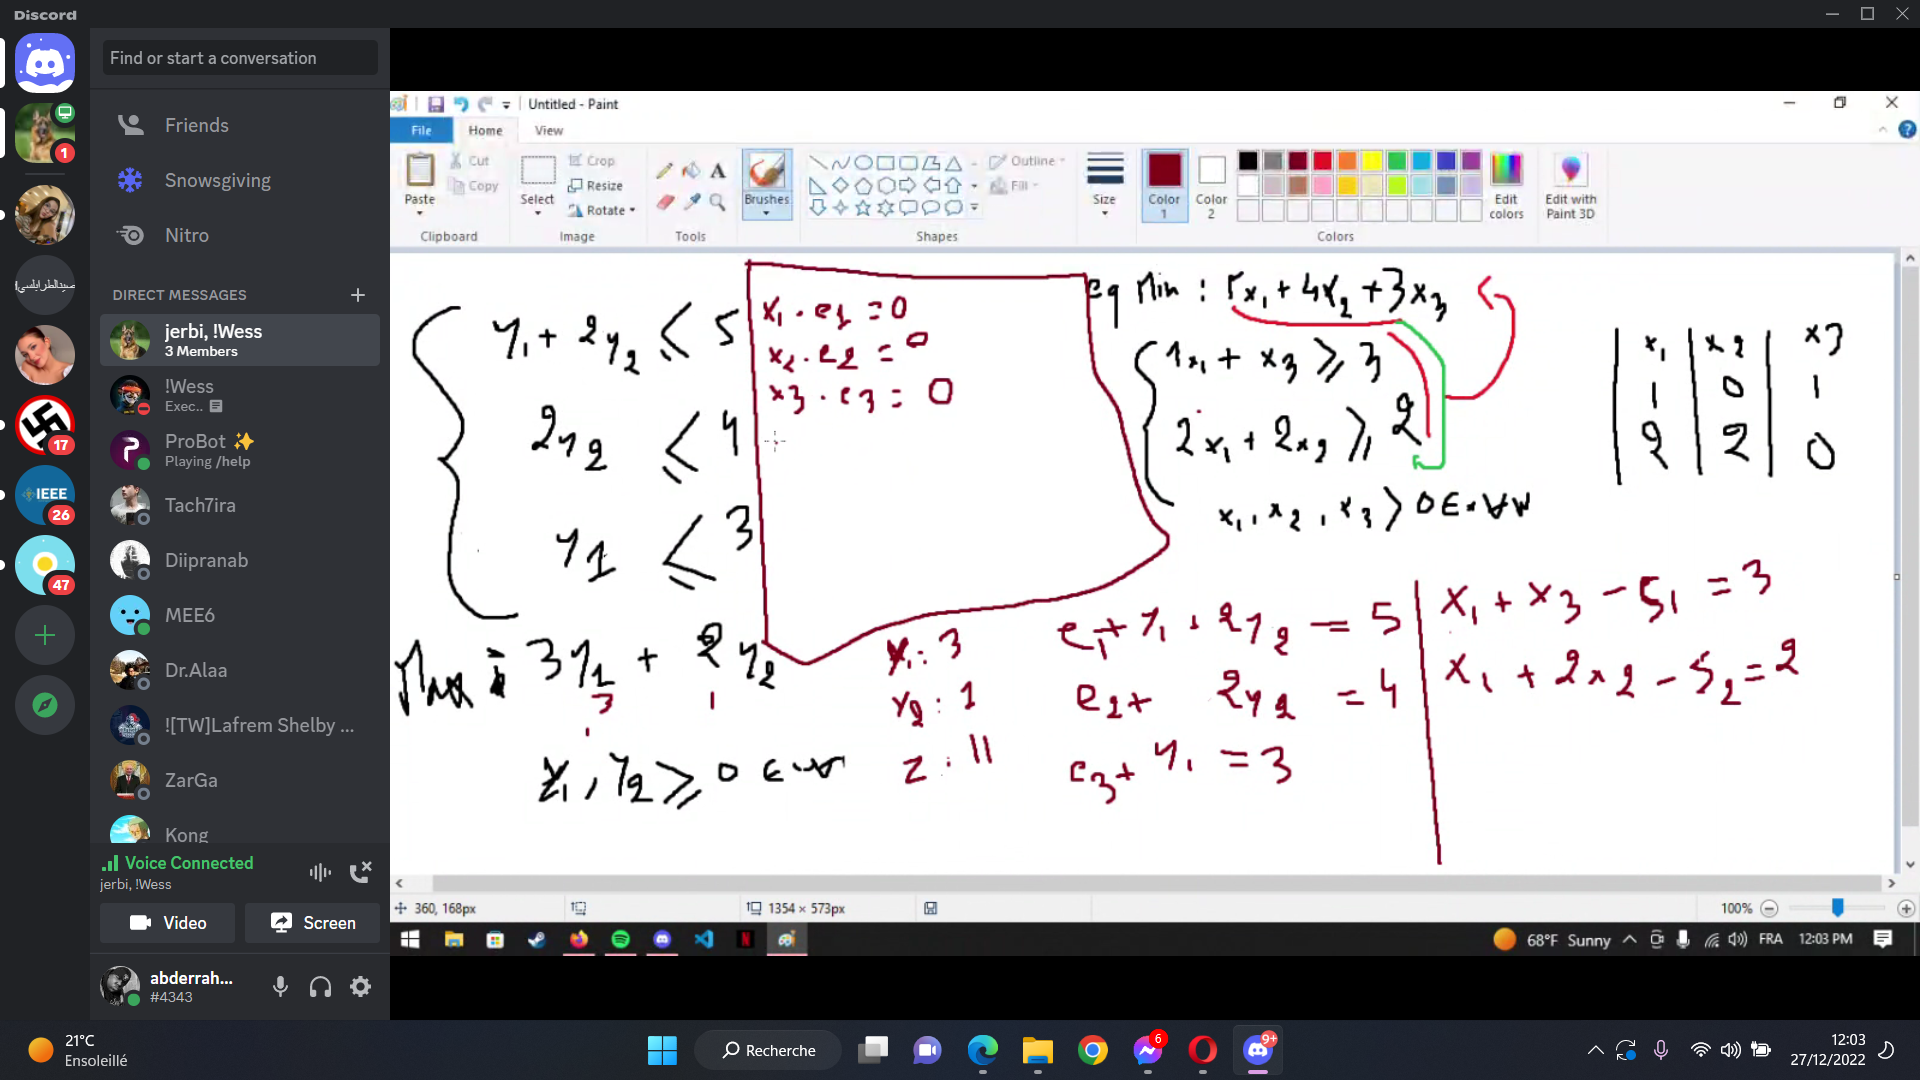 Discord
Find or start a conversation
Friends
Snowsgiving
Nitro
DIRECT MESSAGES
jerbi, !Wess
3 Members
!Wess
Exec..
ProBot ✨
Playing /help
Tach7ira
Diipranab
MEE6
Dr.Alaa
![TW]Lafrem Shelby ...
ZarGa
Kong
1
17
IEEE
26
47
Voice Connected
jerbi, !Wess
Video
Screen
abderrah...
#4343
Untitled - Paint
File
Home
View
Paste
Cut
Copy
Clipboard
Select
Crop
Resize
Rotate
Image
A
Tools
Brushes
Outline
Fill
Shapes
Size
Color 1
Color 2
Edit colors
Edit with Paint 3D
Colors
y1 + 2y2 ≤ 5
2y2 ≤ 4
y1 ≤ 3
Max : 3y1 + 2y2
3 1
y1, y2 ≥ 0
x1 . e1 = 0
x2 . e2 = 0
x3 . e3 = 0
y1 : 3
y2 : 1
z : 11
eq Min : 5x1 + 4x2 + 3x3
1x1 + x3 ≥ 3
2x1 + 2x2 ≥ 2
x1, x2, x3 > 0
x1 x2 x3
1 0 1
2 2 0
e1 + y1 + 2y2 = 5
e2 + 2y2 = 4
e3 + y1 = 3
x1 + x3 - S1 = 3
x1 + 2x2 - S2 = 2
360, 168px
1354 × 573px
100%
68°F Sunny
FRA
12:03 PM
21°C
Ensoleillé
Recherche
6
9+
12:03
27/12/2022